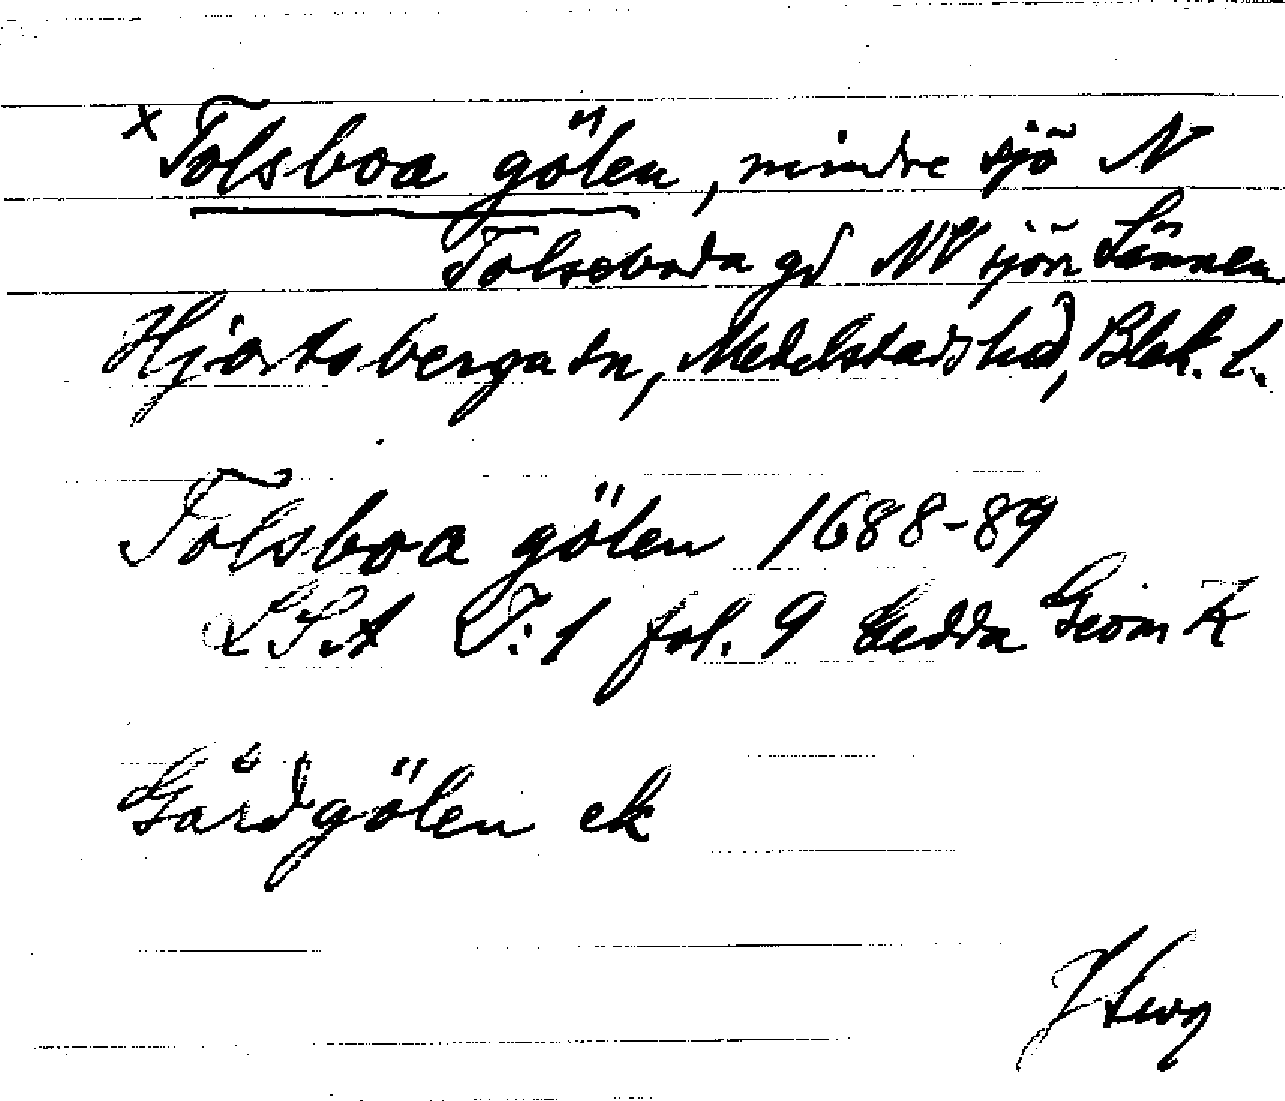 x Tolsboa gölen, mindre sjö N
Tolseboda gd NV sjön Sännen
Hjortsberga sn, Medelstads hd, Blek. l.
Tolsboa gölen 1688-89
LSA T:1 fol. 9 Gedda Geom K
Gårdgölen ek